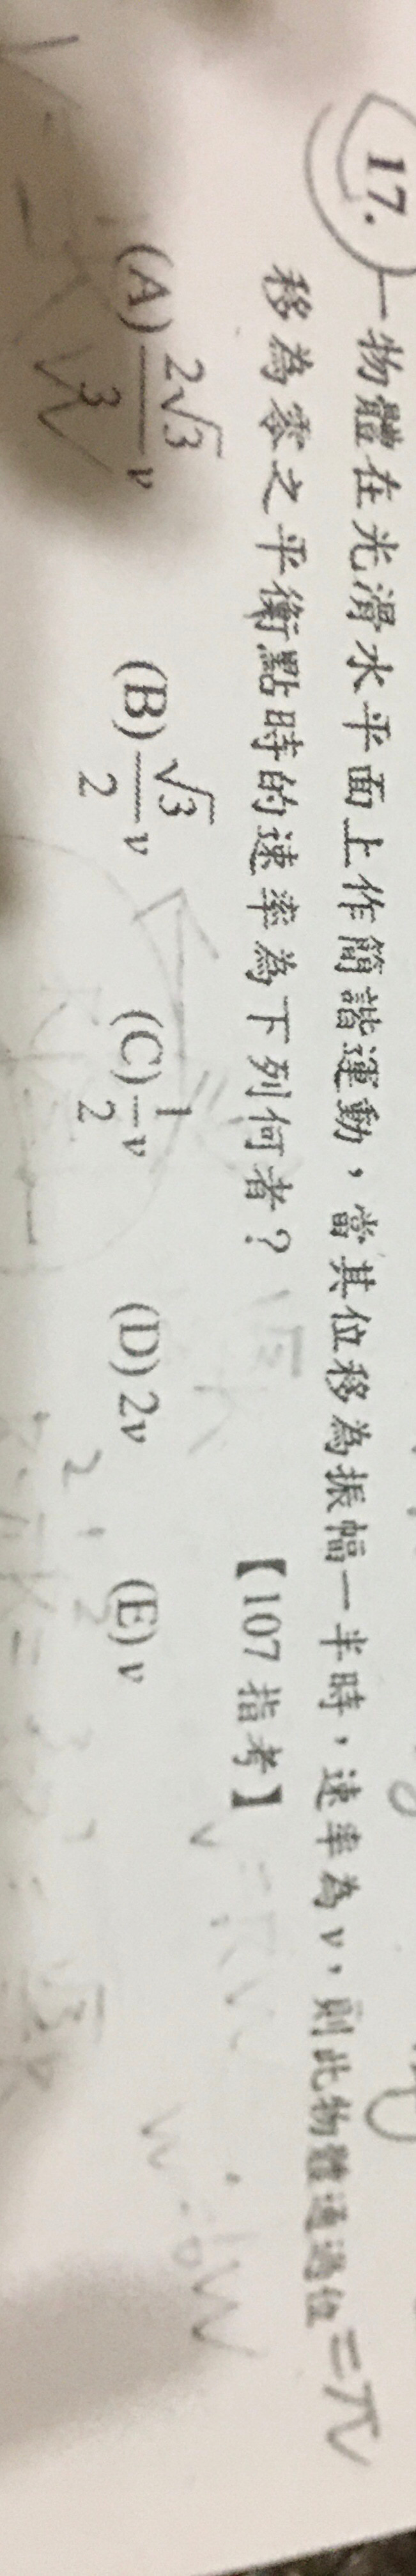 17. 一物體在光滑水平面上作簡諧運動，當其位移為振幅一半時，速率為v，則此物體通過位
移為零之平衡點時的速率為下列何者？ 【107 指考】
(A) 2√3/3 v (B) √3/2 v (C) 1/2 v (D) 2v (E) v